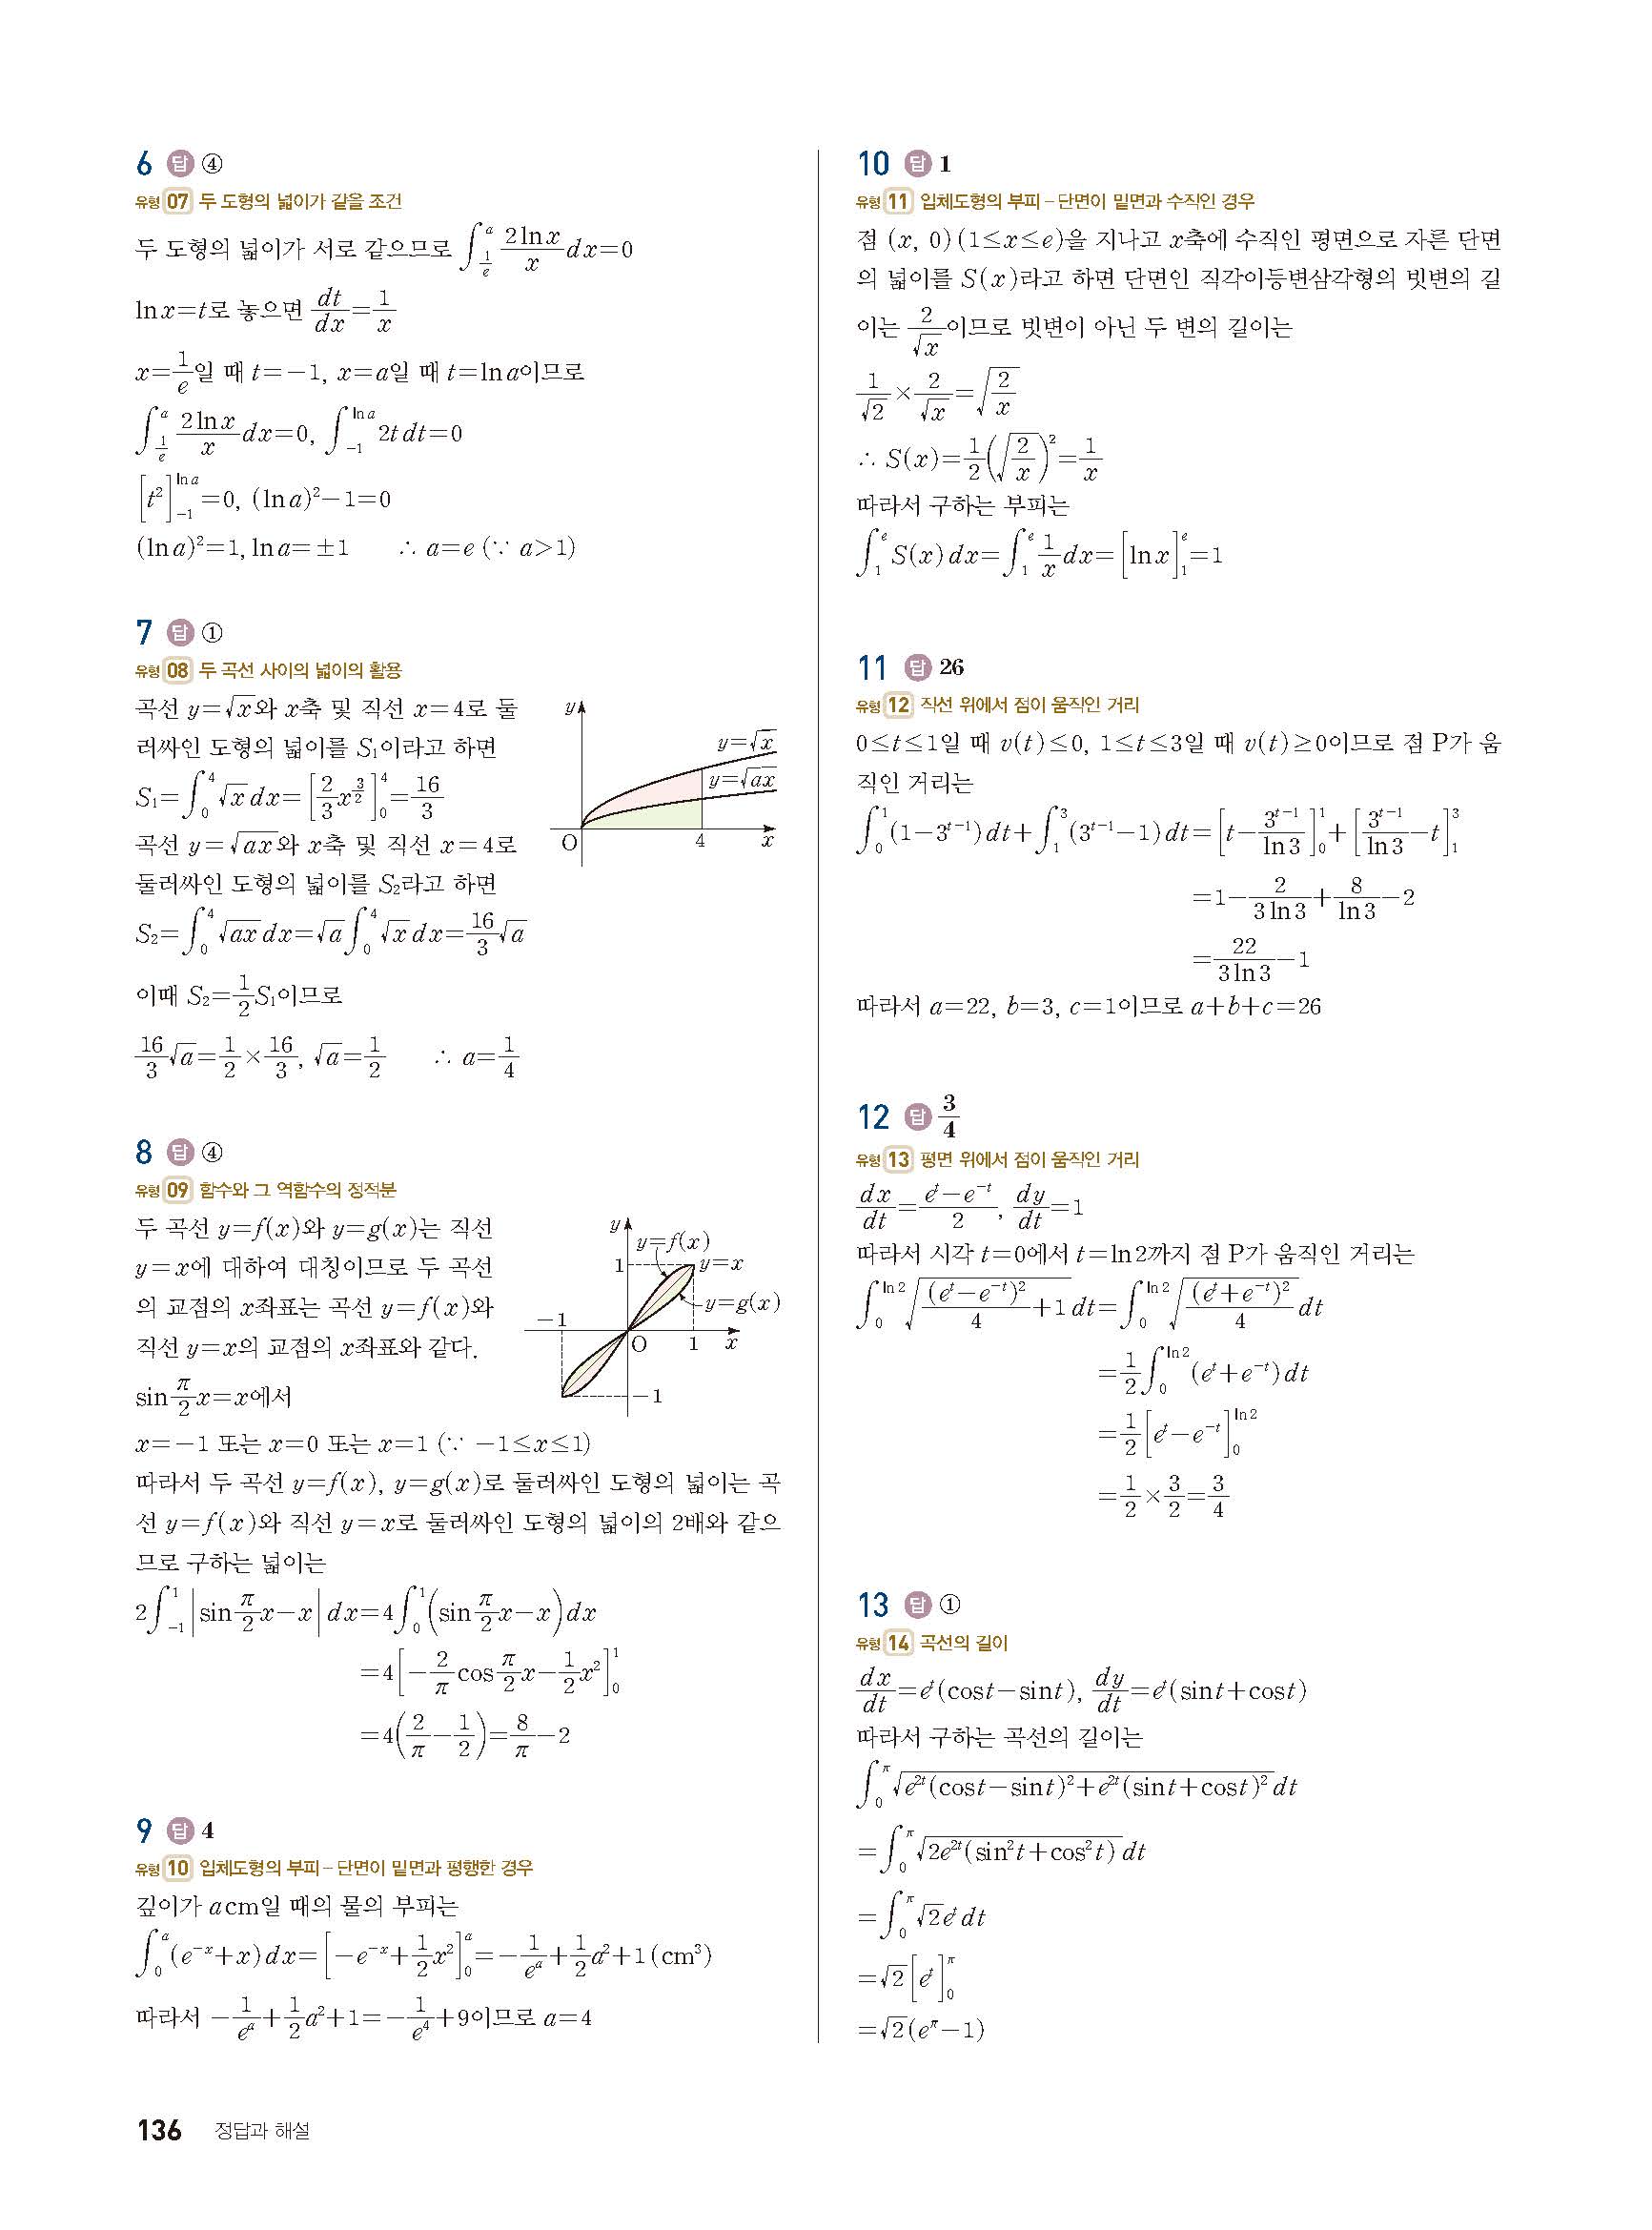 6 답 ④
유형 07 두 도형의 넓이가 같을 조건
두 도형의 넓이가 서로 같으므로 ∫_{1/e}^{a} 2lnx/x dx=0
lnx=t로 놓으면 dt/dx=1/x
x=1/e일 때 t=-1, x=a일 때 t=lna이므로
∫_{1/e}^{a} 2lnx/x dx=0, ∫_{-1}^{lna} 2t dt=0
[t²]_{-1}^{lna}=0, (lna)²-1=0
(lna)²=1, lna=±1 ∴ a=e (∵ a>1)
7 답 ①
유형 08 두 곡선 사이의 넓이의 활용
곡선 y=√x와 x축 및 직선 x=4로 둘
러싸인 도형의 넓이를 S₁이라고 하면
S₁=∫_{0}^{4} √x dx=[2/3 x^{3/2}]_{0}^{4}=16/3
곡선 y=√ax와 x축 및 직선 x=4로
둘러싸인 도형의 넓이를 S₂라고 하면
S₂=∫_{0}^{4} √ax dx=√a∫_{0}^{4} √x dx=16/3 √a
이때 S₂=1/2 S₁이므로
16/3 √a=1/2×16/3, √a=1/2 ∴ a=1/4
y
y=√x
y=√ax
O
4
x
8 답 ④
유형 09 함수와 그 역함수의 정적분
두 곡선 y=f(x)와 y=g(x)는 직선
y=x에 대하여 대칭이므로 두 곡선
의 교점의 x좌표는 곡선 y=f(x)와
직선 y=x의 교점의 x좌표와 같다.
sin π/2 x=x에서
y
y=f(x)
1
y=x
y=g(x)
-1
O
1
x
-1
x=-1 또는 x=0 또는 x=1 (∵ -1≤x≤1)
따라서 두 곡선 y=f(x), y=g(x)로 둘러싸인 도형의 넓이는 곡
선 y=f(x)와 직선 y=x로 둘러싸인 도형의 넓이의 2배와 같으
므로 구하는 넓이는
2∫_{-1}^{1} |sin π/2 x-x| dx=4∫_{0}^{1} (sin π/2 x-x)dx
=4[-2/π cos π/2 x-1/2 x²]_{0}^{1}
=4(2/π-1/2)=8/π-2
9 답 4
유형 10 입체도형의 부피-단면이 밑면과 평행한 경우
깊이가 a cm일 때의 물의 부피는
∫_{0}^{a} (e^{-x}+x)dx=[-e^{-x}+1/2 x²]_{0}^{a}=-1/e^{a}+1/2 a²+1(cm³)
따라서 -1/e^{a}+1/2 a²+1=-1/e⁴+9이므로 a=4
10 답 1
유형 11 입체도형의 부피-단면이 밑면과 수직인 경우
점 (x, 0)(1≤x≤e)을 지나고 x축에 수직인 평면으로 자른 단면
의 넓이를 S(x)라고 하면 단면인 직각이등변삼각형의 빗변의 길
이는 2/√x이므로 빗변이 아닌 두 변의 길이는
1/√2×2/√x=√(2/x)
∴ S(x)=1/2(√(2/x))²=1/x
따라서 구하는 부피는
∫_{1}^{e} S(x)dx=∫_{1}^{e} 1/x dx=[lnx]_{1}^{e}=1
11 답 26
유형 12 직선 위에서 점이 움직인 거리
0≤t≤1일 때 v(t)≤0, 1≤t≤3일 때 v(t)≥0이므로 점 P가 움
직인 거리는
∫_{0}^{1} (1-3^{t-1})dt+∫_{1}^{3} (3^{t-1}-1)dt=[t-3^{t-1}/ln3]_{0}^{1}+[3^{t-1}/ln3-t]_{1}^{3}
=1-2/3ln3+8/ln3-2
=22/3ln3-1
따라서 a=22, b=3, c=1이므로 a+b+c=26
12 답 3/4
유형 13 평면 위에서 점이 움직인 거리
dx/dt=(e^{t}-e^{-t})/2, dy/dt=1
따라서 시각 t=0에서 t=ln2까지 점 P가 움직인 거리는
∫_{0}^{ln2} √((e^{t}-e^{-t})²/4+1) dt=∫_{0}^{ln2} √((e^{t}+e^{-t})²/4) dt
=1/2∫_{0}^{ln2} (e^{t}+e^{-t})dt
=1/2[e^{t}-e^{-t}]_{0}^{ln2}
=1/2×3/2=3/4
13 답 ①
유형 14 곡선의 길이
dx/dt=e^{t}(cost-sint), dy/dt=e^{t}(sint+cost)
따라서 구하는 곡선의 길이는
∫_{0}^{π} √(e^{2t}(cost-sint)²+e^{2t}(sint+cost)²) dt
=∫_{0}^{π} √(2e^{2t}(sin²t+cos²t)) dt
=∫_{0}^{π} √2e^{t} dt
=√2[e^{t}]_{0}^{π}
=√2(e^{π}-1)
136 정답과 해설